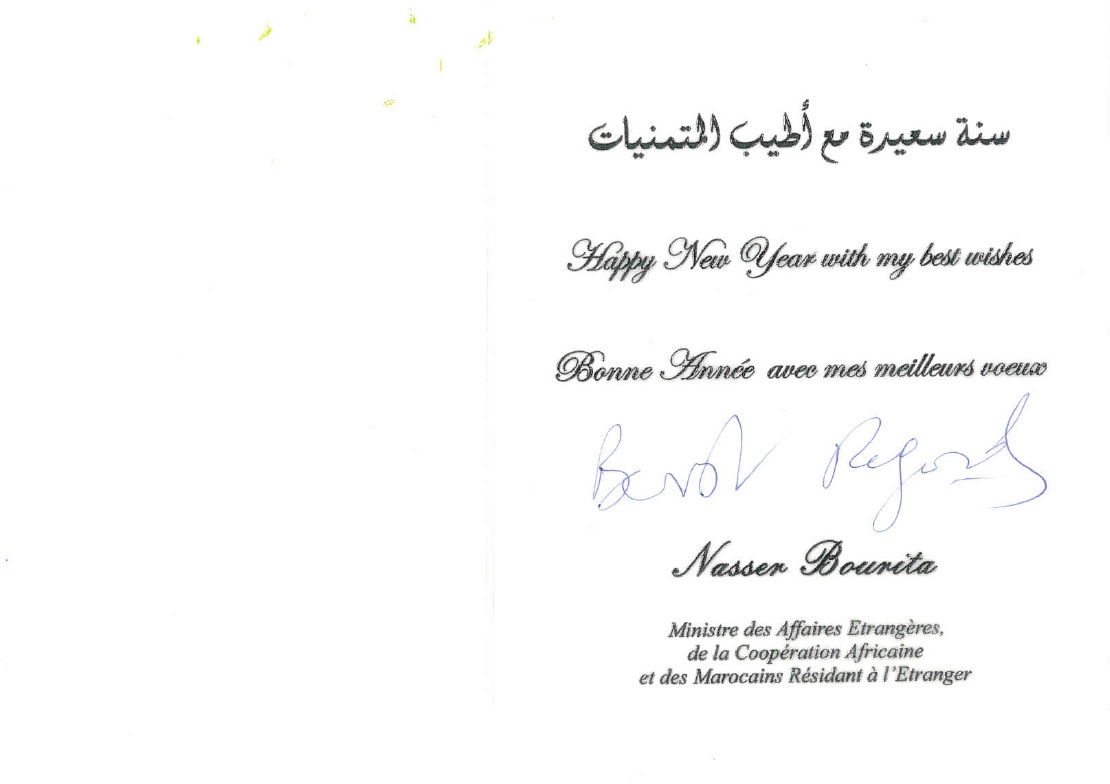 سنة سعيدة مع أطيب المتمنيات
Happy New Year with my best wishes
Bonne Année avec mes meilleurs voeux
Best Regards
Nasser Bourita
Ministre des Affaires Etrangères,
de la Coopération Africaine
et des Marocains Résidant à l'Etranger